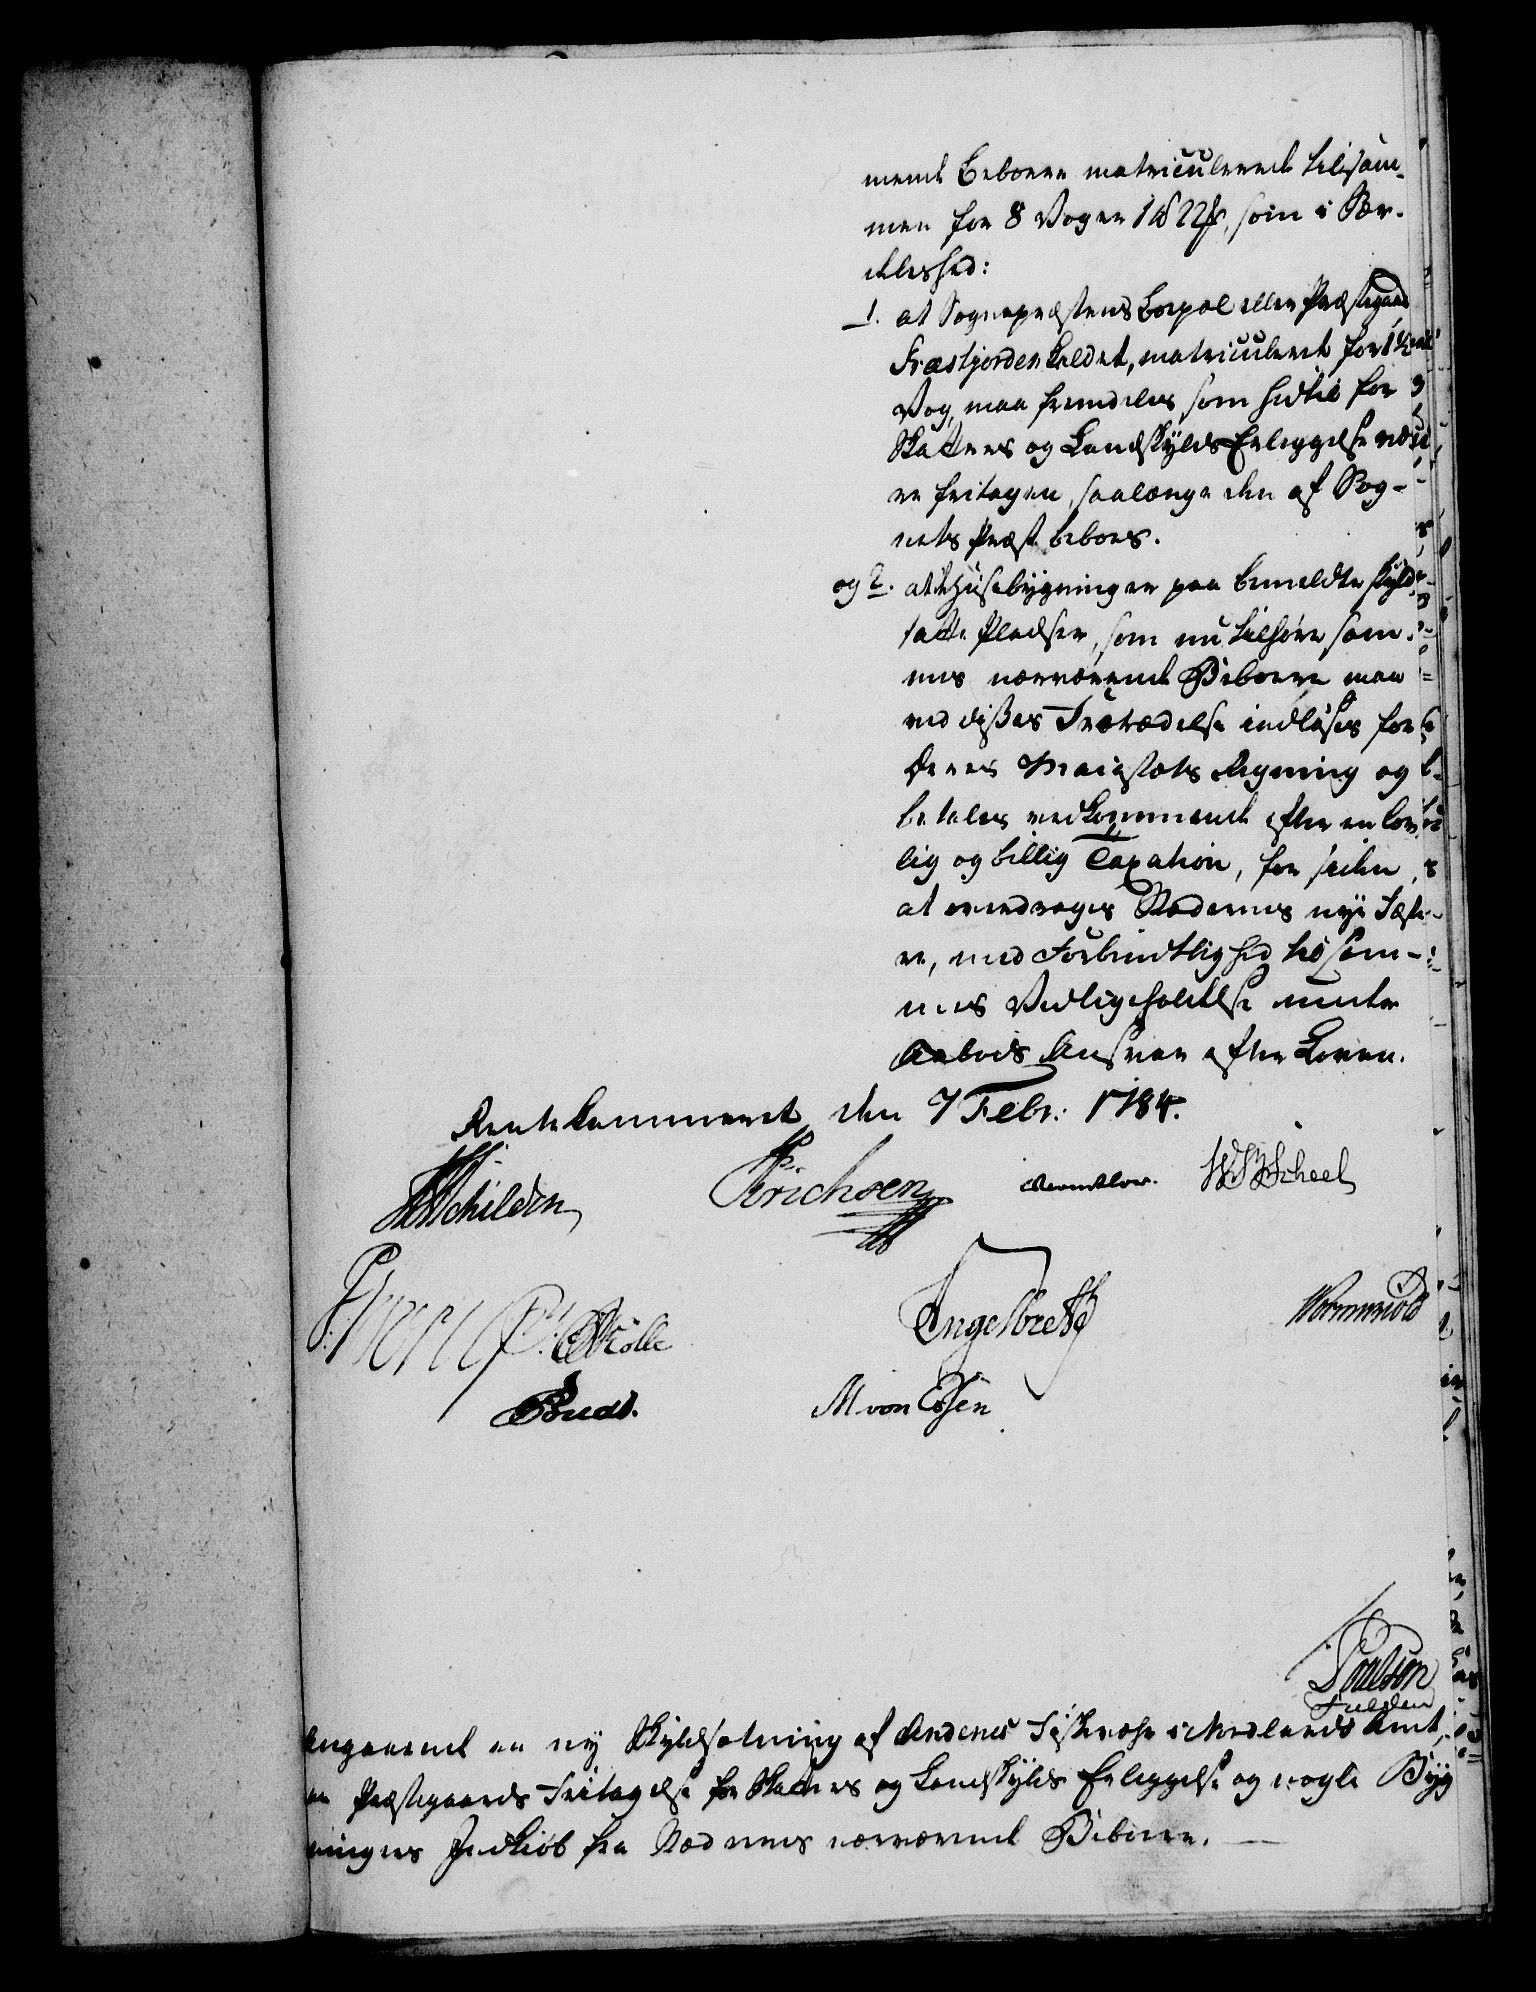 mende Beboere matriculerede tilsam-
men for 8 Voger 1 ℔ 22 ß, som i Sær-
deleshed:
1. at Sognepræstens Boepæl eller Præstegaard
Præstjorden kaldet, matriculeret for 1½
Vog, maa fremdeles som hidtil for
Skatters og Landskylds Erleggelse væ-
re fritagen, saalænge den af Sog-
nets Præst beboes.
og 2. at Huusebygninger paa bemeldte skyld-
satte Pladser, som nu tilhøre sam-
mes nærværende Beboere maa
ved disses Fratrædelse indløses for
Deres Majestæts Regning og
betales vedkommende efter en lov-
lig og billig Taxation, for siden
at overdrages Stædernes nye Fæste-
re, med Forbindtlighed til sam-
mes Vedligeholdelse under
Aabods Ansvar efter Loven.
Rentekammeret den 7 Febr: 1784.
HSchilden
Erichsen
Reventlow.
Scheel
Mölle
Engelbreth
Wormskiold
Bredt.
M von Essen
Poulson
Angaaende en ny Skyldsætning af Andenes Fiskevær i Nordlands Amt,
en Præstegaards Fritagelse for Skatters og Landskylds Erleggelse og nogle Byg
ningers Indkiøb fra Stædernes nærværende Beboere.